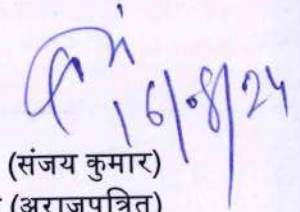 16/08/24
(संजय कुमार)
(अराजपत्रित)